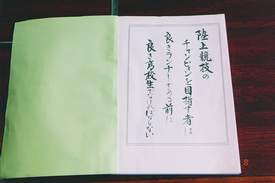 陸上競技の
チャンピオンを目指す者は
良きランナーである前に
良き高校生でなければならない
8